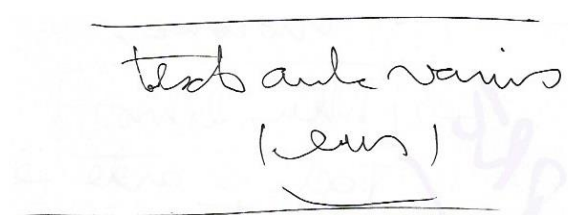 texto aula varios
(eus)